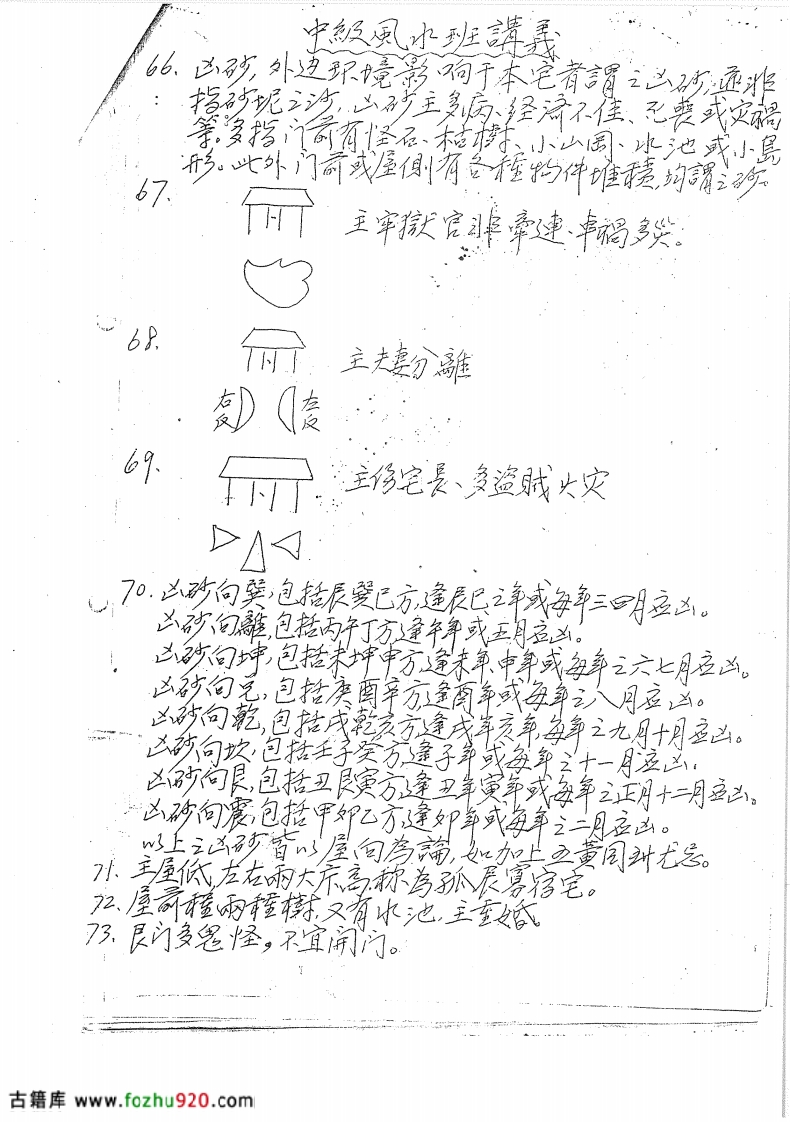 中級風水班講義
66. 凶砂,外边环境影响于本宅者謂之凶砂,並非
指砂坭之沙,凶砂主多病、经济不佳、死喪或灾禍
等。多指门前有怪石、枯樹、小山岡、水池或小島
形。此外门前或屋側有各種物件堆積,均謂之砂。
67.
主牢獄官非牽連、車禍多災。
68.
主夫妻分離
右反 左反
69.
主傷宅長、多盜賊火灾
70. 凶砂向巽,包括辰巽巳方,逢辰巳之年或每年三四月应凶。
凶砂向離,包括丙午丁方,逢午年或五月应凶。
凶砂向坤,包括未坤申方,逢未年、申年或每年之六七月应凶。
凶砂向兑,包括庚酉辛方,逢酉年或每年之八月应凶。
凶砂向乾,包括戌乾亥方,逢戌年亥年,每年之九月十月应凶。
凶砂向坎,包括壬子癸方,逢子年或每年之十一月应凶.
凶砂向艮,包括丑艮寅方,逢丑年寅年或每年之正月十二月应凶。
凶砂向震,包括甲卯乙方,逢卯年或每年之二月应凶。
以上之凶砂皆以屋向為論,如加上五黄同到尤忌。
71. 主屋低,左右兩大床高,称為孤辰寡宿宅。
72. 屋前種兩種樹,又有水池,主重婚。
73. 艮门多鬼怪。不宜開门。
古籍库 www.fozhu920.com